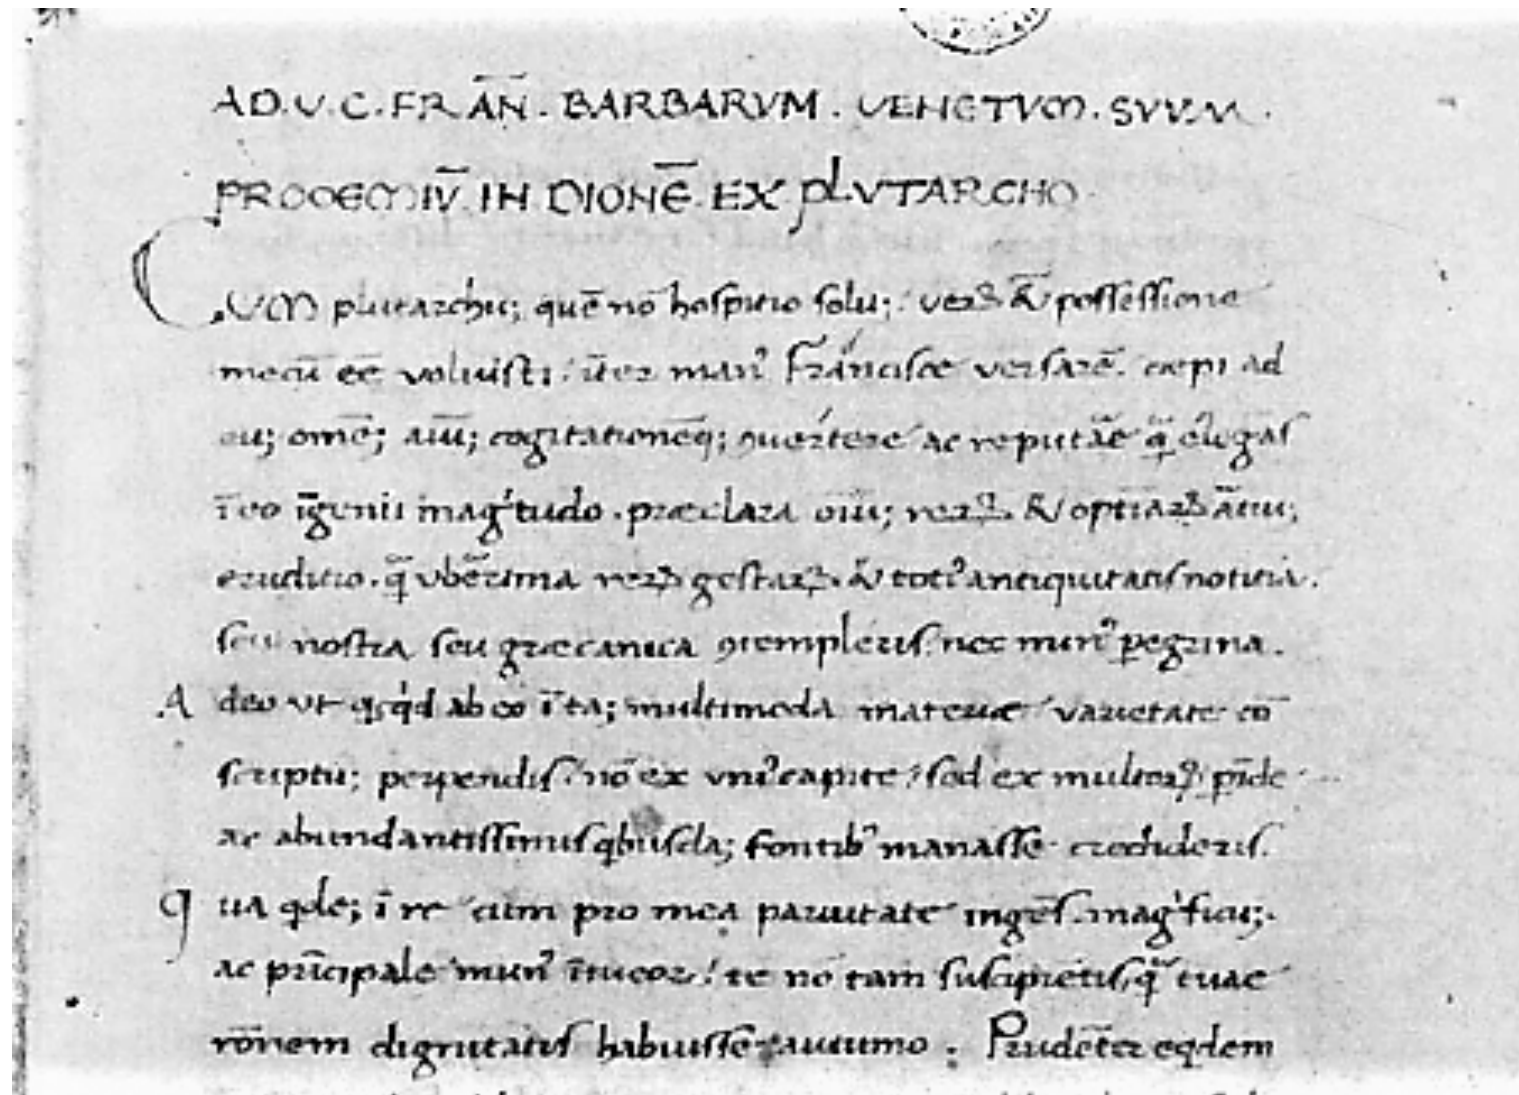 AD. V. C. FRAÑ. BARBARVM. VENETVM. SVVM.
PROOEMIV̄. IN DIONĒ. EX. PLVTARCHO.
CVM plutarchu; quē nō hospitio solu; / verꝝ & possessione
mecū eē voluisti / īter manꝰ Francisce versarē. coepi ad
omē; cogitationēq; ꝯuertere ac reputāe elegās
ī eo īgenii magͥtudo. præclara oīu; rerꝝ. & optīarꝝ ātiu;
eruditio. q̄ vberrima rerꝝ gestarꝝ. & totꝰ antiquitatis notitia.
seu nostra seu græcanica ꝯtempleris / nec minꝰ ꝑegrina.
Adeo vt qcqͥd ab eo ī ta; multimoda materiæ / varietate cō
scriptu; perpendis / nō ex vniꝰ capite / sed ex multorꝝ ꝓīde
ac abundantissimis qbusda; fontibꝰ manasse credideris.
Qua qde; ī re cum pro mea paruitate ingēs. magͥficu;.
ac prīcipale munꝰ ītueor / te nō tam suscipiētis, q̄ tuae
rōnem dignitatis habuisse autumo. Prudēter eqdem